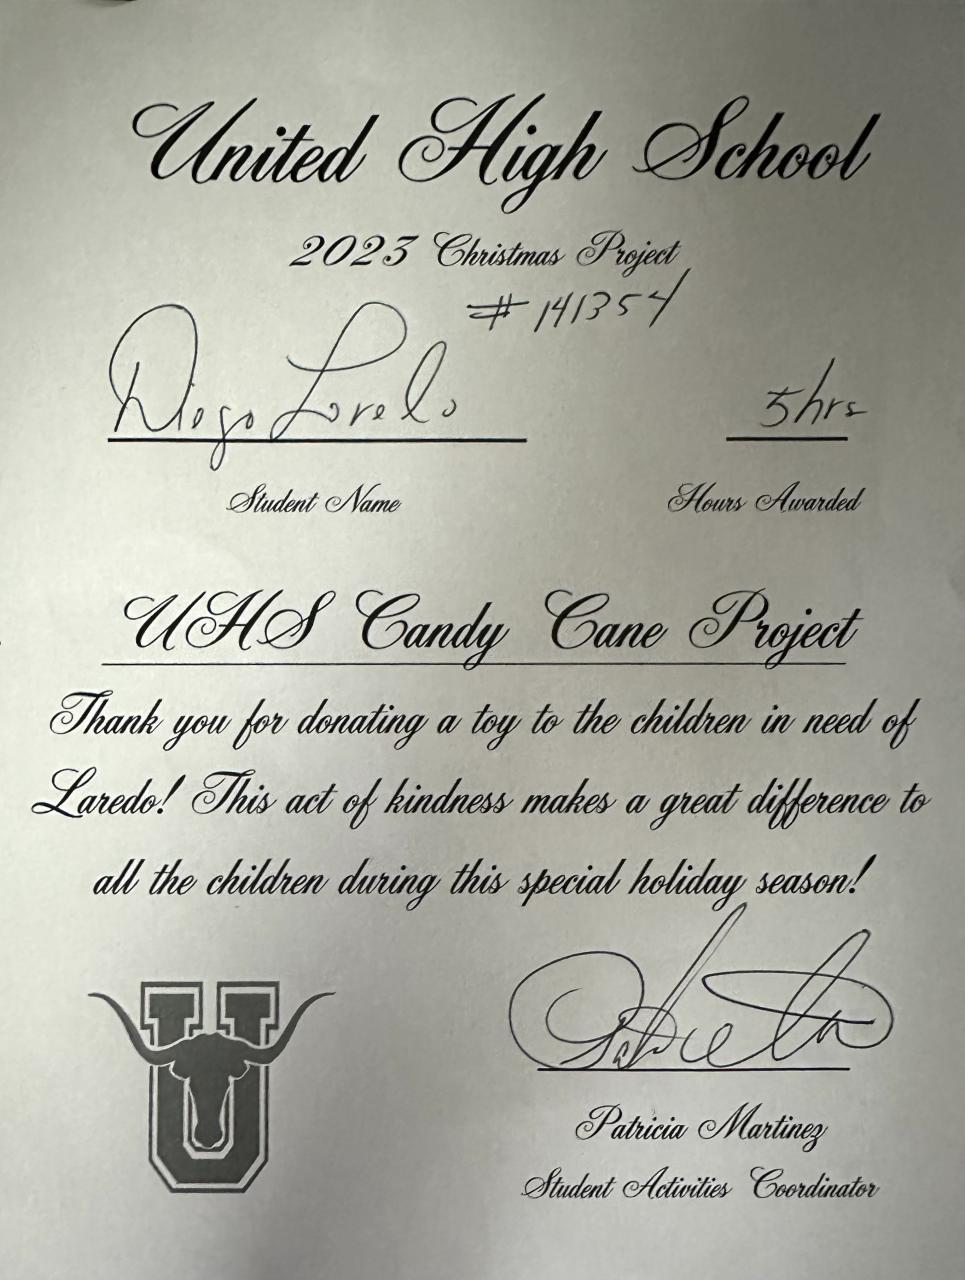 United High School
2023 Christmas Project
# 141354
Diego Loredo
5hrs
Student Name
Hours Awarded
UHS Candy Cane Project
Thank you for donating a toy to the children in need of
Laredo! This act of kindness makes a great difference to
all the children during this special holiday season!
U
Patricia Martinez
Student Activities Coordinator